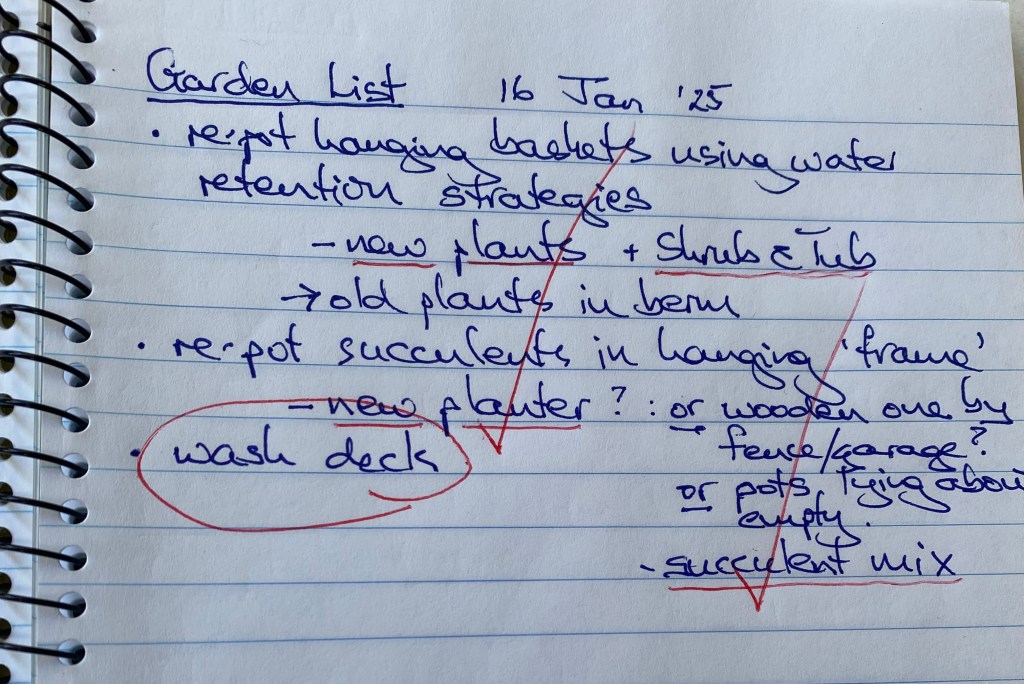 Garden List 16 Jan '25
• re-pot hanging baskets using water
retention strategies
- new plants + Shrub & Tub
→ old plants in berm
• re-pot succulents in hanging 'frame'
- new planter? : or wooden one by
fence/garage?
or pots lying about
empty.
• wash deck
- succulent mix